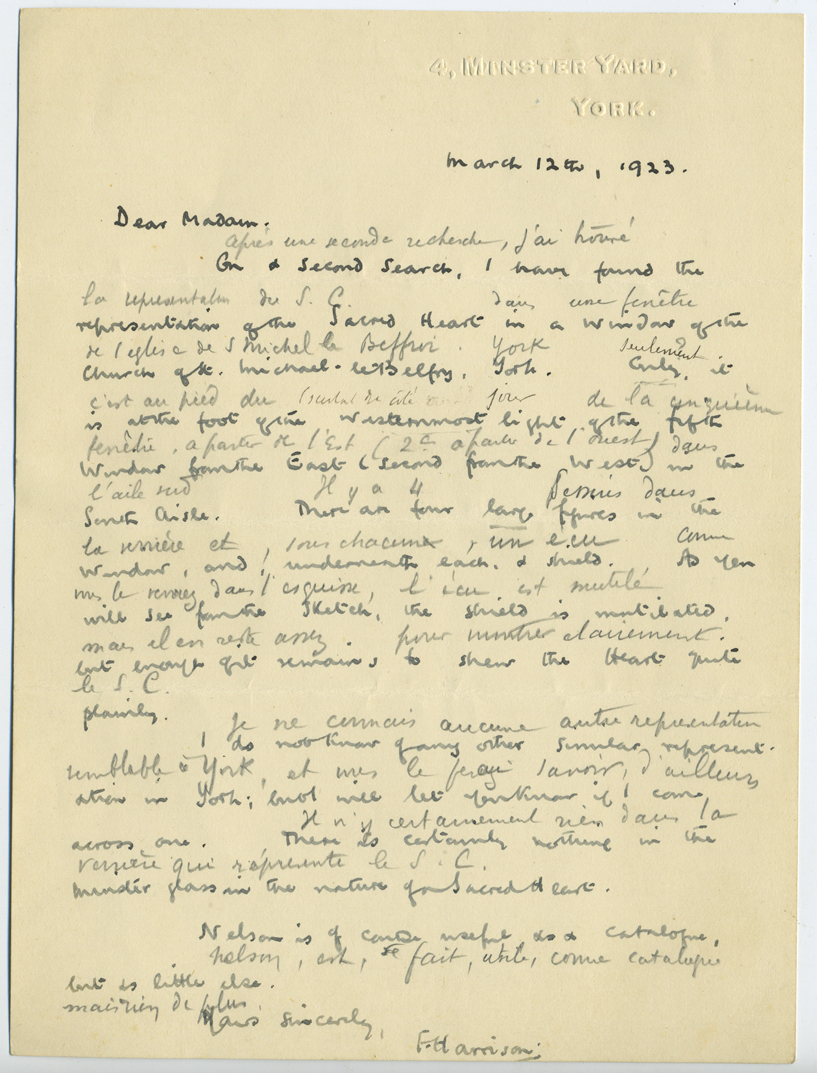 4, MINSTER YARD,
YORK.
March 12th, 1923.
Dear Madam.
Après une seconde recherche, j'ai trouvé
On a Second Search, I have found the
la representation du S. C. dans une fenêtre
representation of the Sacred Heart in a window of the
de l'église de S Michel le Beffroi. York seulement.
Church of St. Michael-le-Belfry, York. Only, it
c'est au pied du jour de la cinquième
is at the foot of the Westernmost light of the fifth
fenêtre, a partir de l'Est (2e a partir de l'ouest) dans
Window from the East (Second from the West) in the
l'aile sud Il y a 4 dans
South Aisle. There are four large figures in the
la verrière et, sous chacune, un écu comme
Window, and, underneath each, a shield. As you
vous le verrez dans l'esquisse, l'écu est mutilé
will see from the Sketch, the shield is mutilated,
mais il en reste assez. pour montrer clairement.
but enough of it remains to shew the Heart quite
le S. C.
plainly.
Je ne connais aucune autre representation
I do not know of any other similar represent-
semblable à York, et vous le ferai savoir, d'ailleurs
ation in York; but will let you know if I come
Il n'y certainement rien dans la
across one. There is certainly nothing in the
verrière qui réprésente le S. C.
Minster glass in the nature of a Sacred Heart.
Nelson is of course useful as a catalogue,
Nelson, est, fait, utile, comme catalogue
but is little else.
mais rien de plus.
Yours sincerely,
F. Harrison.